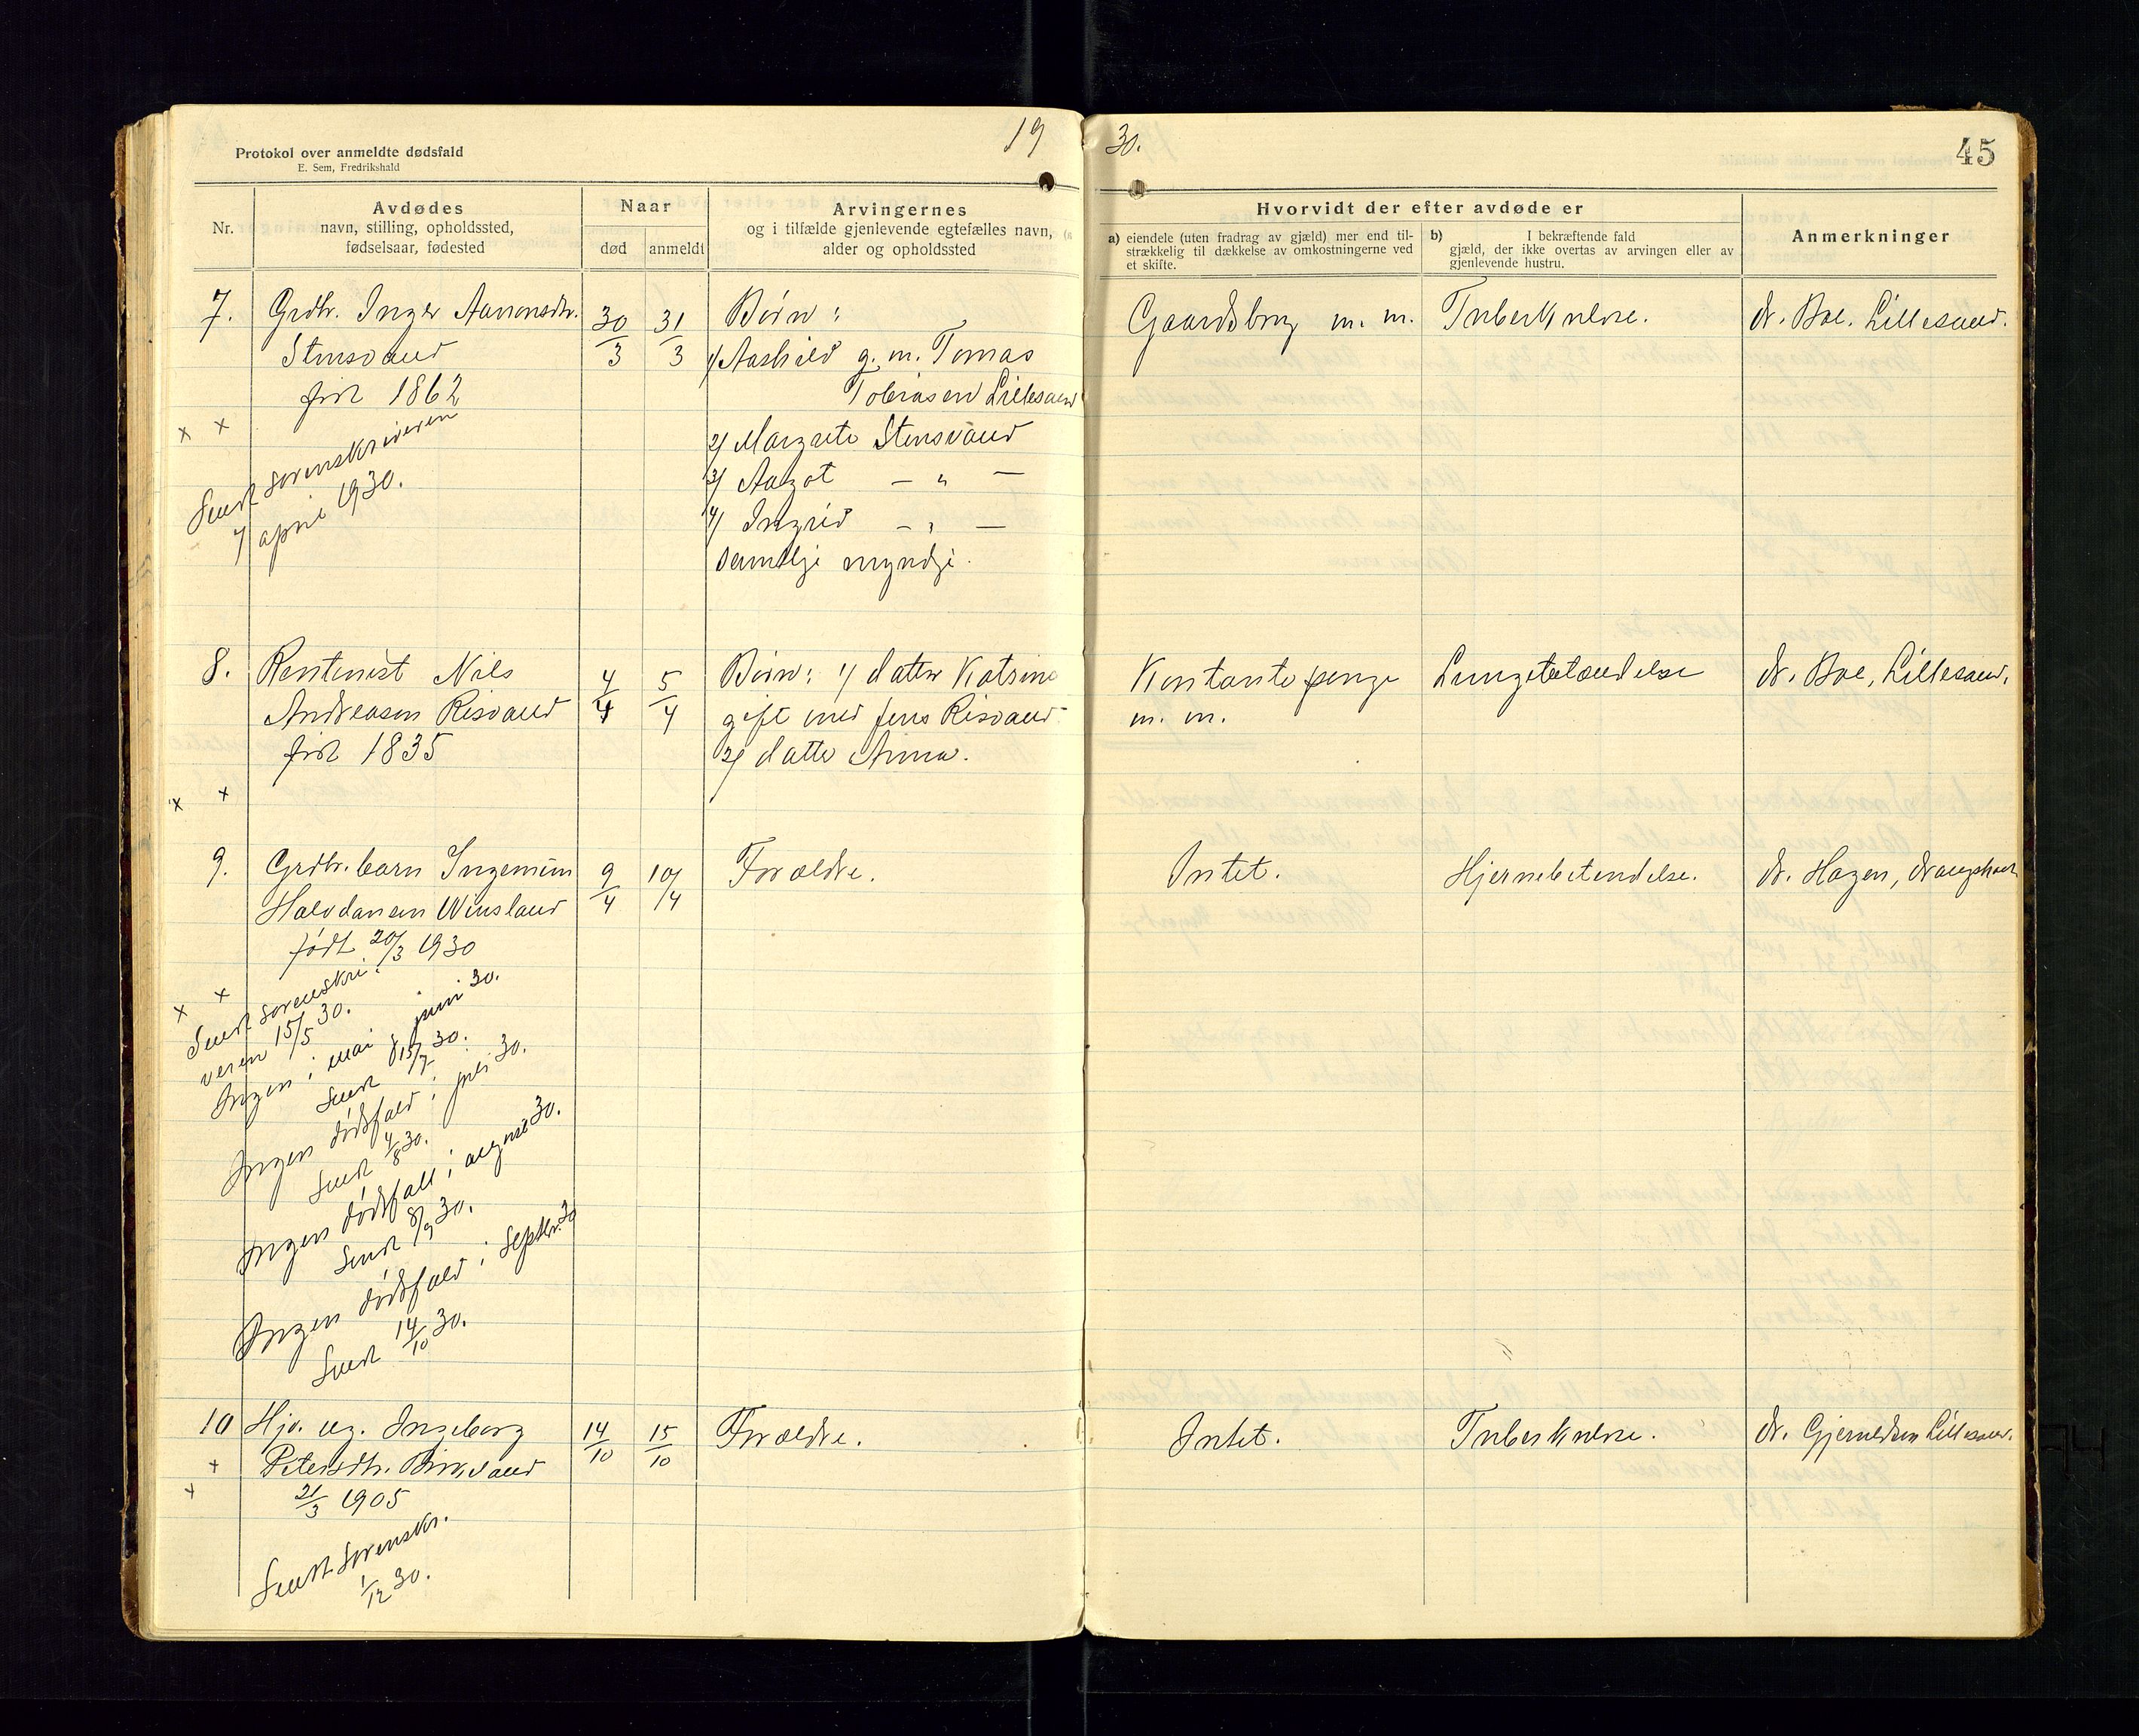 Protokol over anmeldte dødsfald
E. Sem, Fredrikshald
19
30.
45
Nr.
Avdødes
navn, stilling, opholdssted,
fødselsaar, fødested
Naar
død
anmeldt
Arvingernes
og i tilfælde gjenlevende egtefælles navn,
alder og opholdssted
Hvorvidt der efter avdøde er
a) eiendele (uten fradrag av gjæld) mer end til-
strækkelig til dækkelse av omkostningerne ved
et skifte.
b) I bekræftende fald
gjæld, der ikke overtas av arvingen eller av
gjenlevende hustru.
Anmerkninger
7. Grdbr. Inger Aanonsdtr. 30/3 31/3 Børn: Gaardsbrug m. m. Tuberkulose. dr. Boe. Lillesand.
Stensvand 1/ Aashild g. m. Tomas
fød 1862 Tobiasen Lillesand
x x
2/ Margrete Stensvand
3/ Aagot — " —
4/ Ingrid — " —
samtlige myndige.
Sendt sorenskriveren
7 april 1930.
8. Rentenist Nils 4/4 5/4 Børn: 1/ datter Katrine Kontante penge Lungebetændelse dr. Boe, Lillesand.
Andreasen Risvand gift med Jens Risvand m. m.
fød 1835 2/ datter Anna.
x x
9. Grdbr. barn Ingemun 9/4 10/4 Forældre. Intet. Hjernebetendelse. dr. Hagen,
Halvdansen Vinsland
født 20/3 1930
x x
Sendt sorenskri-
veren 15/5 30.
Ingen i mai & juni 30.
Sendt 15/7 30.
Ingen dødsfald i juli 30.
Sendt 4/8 30.
Ingen dødsfall i august 30.
Sendt 8/9 30.
Ingen dødsfald i Septbr. 30
Sendt 14/10 30.
10 Hjv. ug. Ingeborg 14/10 15/10 Forældre. Intet. Tuberkulose. dr. Gjerueldsen Lillesand.
+ Petersdtr. Birkeland
+ 21/3 1905
Sendt Sorenskr.
1/12 30.